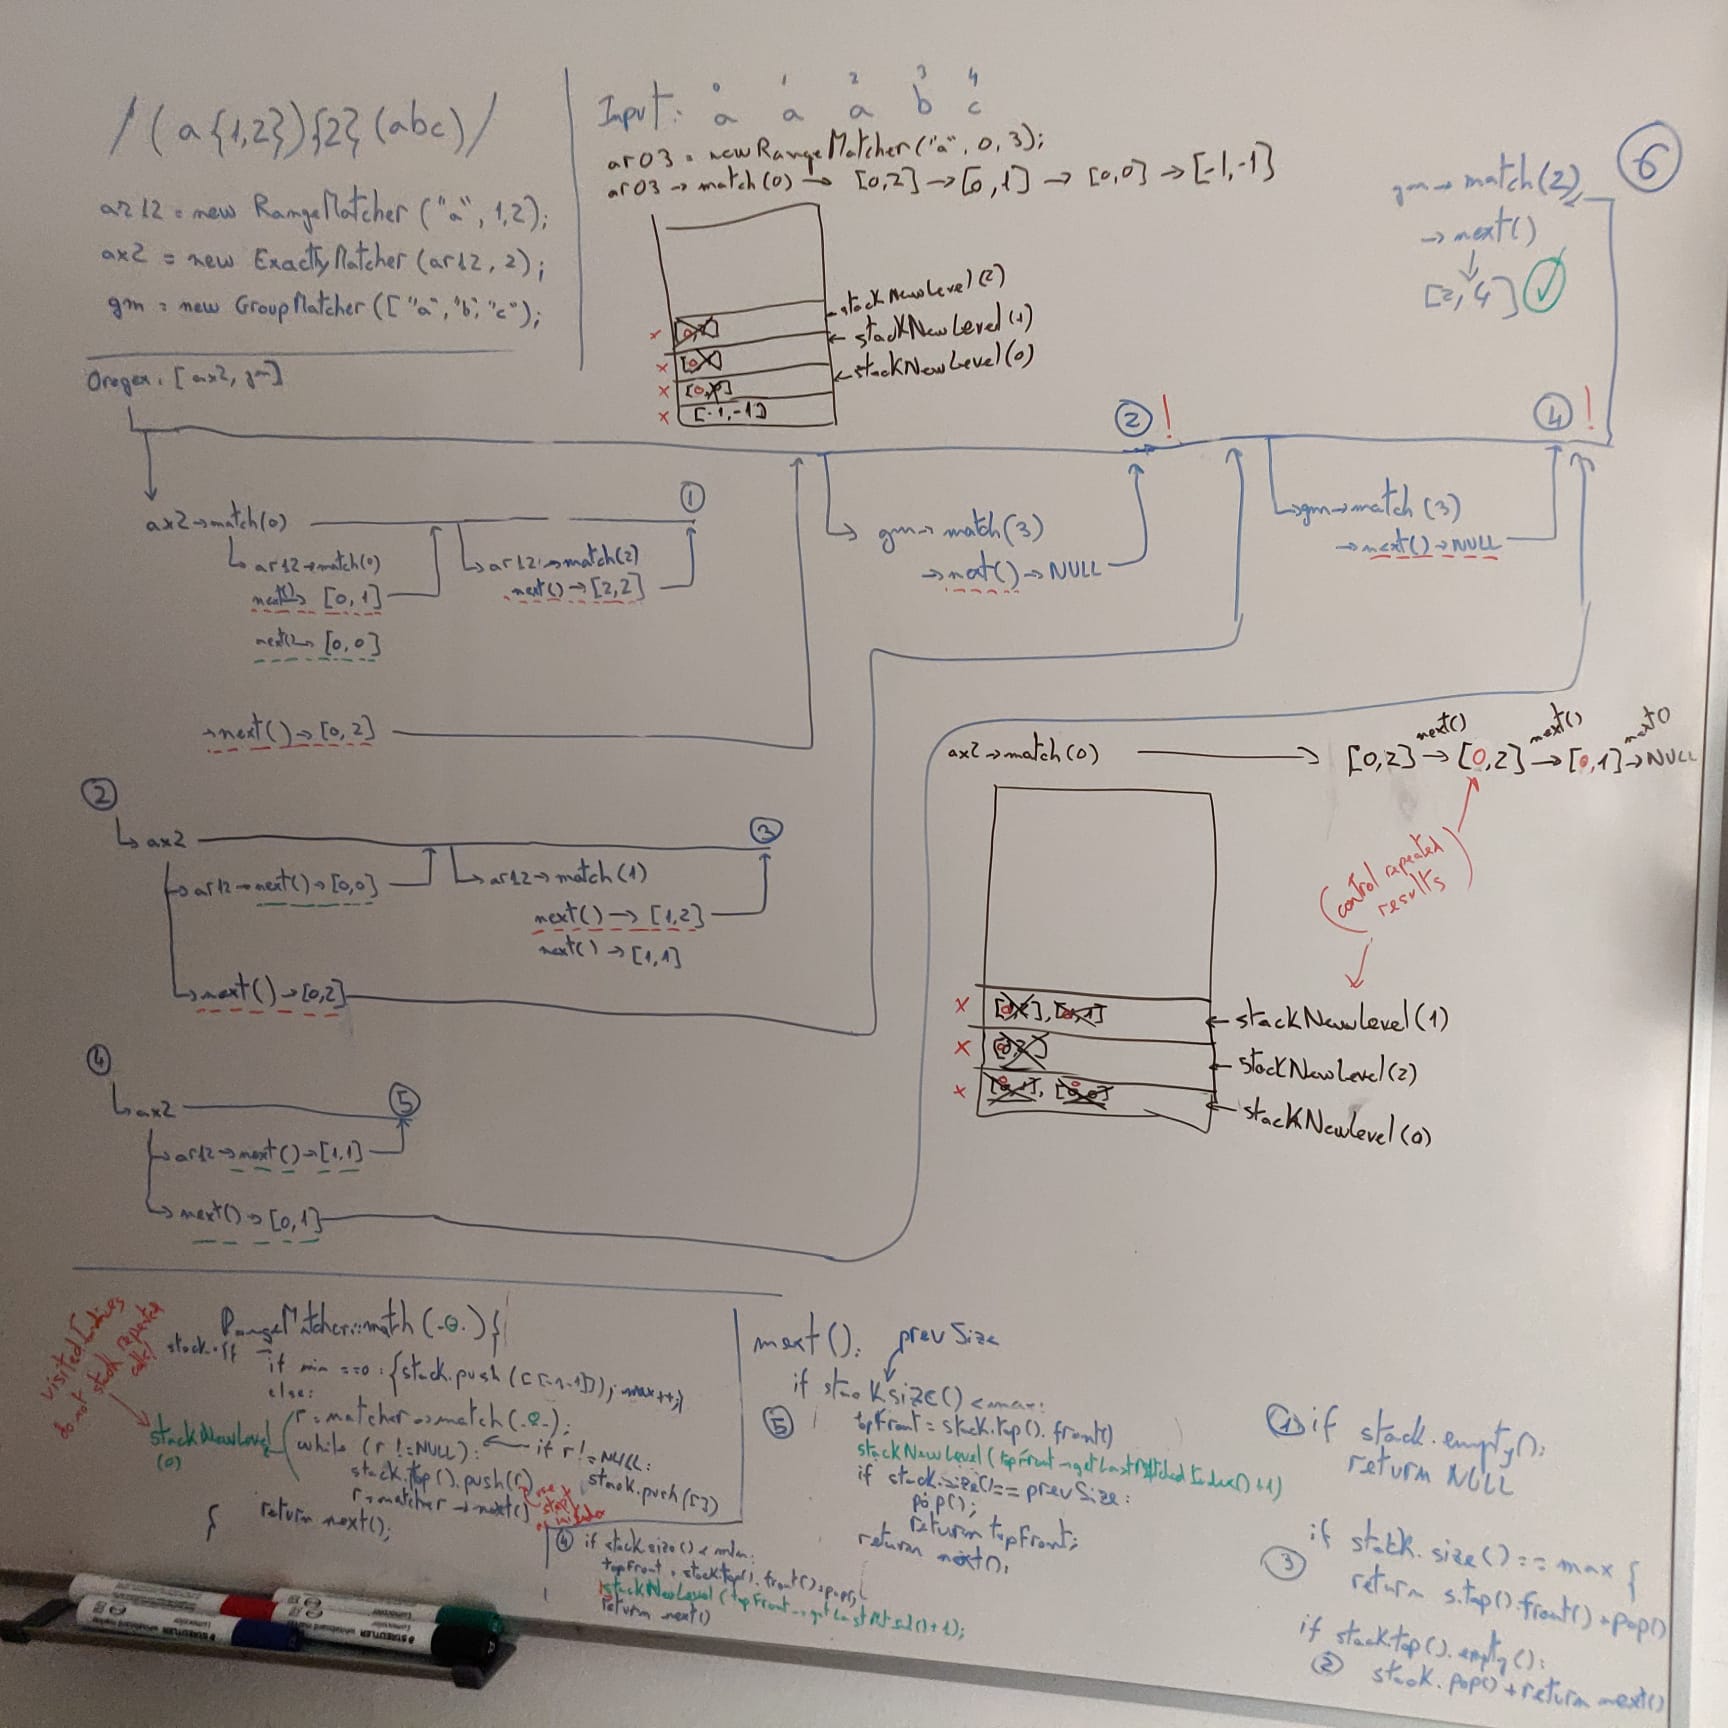 /(a{1,2}){2}(abc)/
ar12 = new RangeMatcher("a", 1,2);
ax2 = new ExactlyMatcher(ar12, 2);
gm = new GroupMatcher(["a","b","c");
Oregex: [ax2, gm]
0 1 2 3 4
Input: a a a b c
ar03 = new RangeMatcher("a", 0, 3);
ar03 → match(0) → [0,2] → [0,1] → [0,0] → [-1,-1]
stackNewLevel(2)
stackNewLevel(1)
stackNewLevel(0)
x
x
x
x [-1,-1]
6
gm → match(2)
→ next()
[2,4]
2 !
4 !
1
ax2 → match(0)
ar12 → match(0)
next() → [0,1]
next() → [0,0]
ar12 → match(2)
next() → [2,2]
→ next() → [0,2]
gm → match(3)
→ next() → NULL
gm → match(3)
→ next() → NULL
2
ax2
3
ar12 → next() → [0,0]
ar12 → match(1)
next() → [1,2]
next() → [1,1]
next() → [0,2]
4
ax2
5
ar12 → next() → [1,1]
next() → [0,1]
next() next() next()
ax2 → match(0) → [0,2] → [0,2] → [0,1] → NULL
(control repeated
results)
x [0,2], [0,1] stackNewLevel(1)
x [0,2] stackNewLevel(2)
x [0,1], [0,0] stackNewLevel(0)
visited Indices
do not stack repeated
calls
RangeMatcher::math(-0-) {
if min ==0: {stack.push([[-1-1]]); max++;}
else:
stackNewLevel
(0)
r = matcher → match(-0-);
while (r != NULL): ← if r != NULL:
stack.top().push(r) stack.push([])
r = matcher → next()
return next();
}
next(): prevSize
if stack.size() < max:
5
topFront = stack.top().front()
stackNewLevel(topFront → getLastMatchedIndex()+1)
if stack.size() == prevSize:
pop();
return topFront;
return next();
4 if stack.size() < min:
topFront = stack.top().front() + pop();
stackNewLevel(topFront → getLast
return next()
1 if stack.empty():
return NULL
3
if stack.size() == max {
return s.top().front() + pop()
if stack.top().empty():
2 stack.pop() + return next()
STAEDTLER